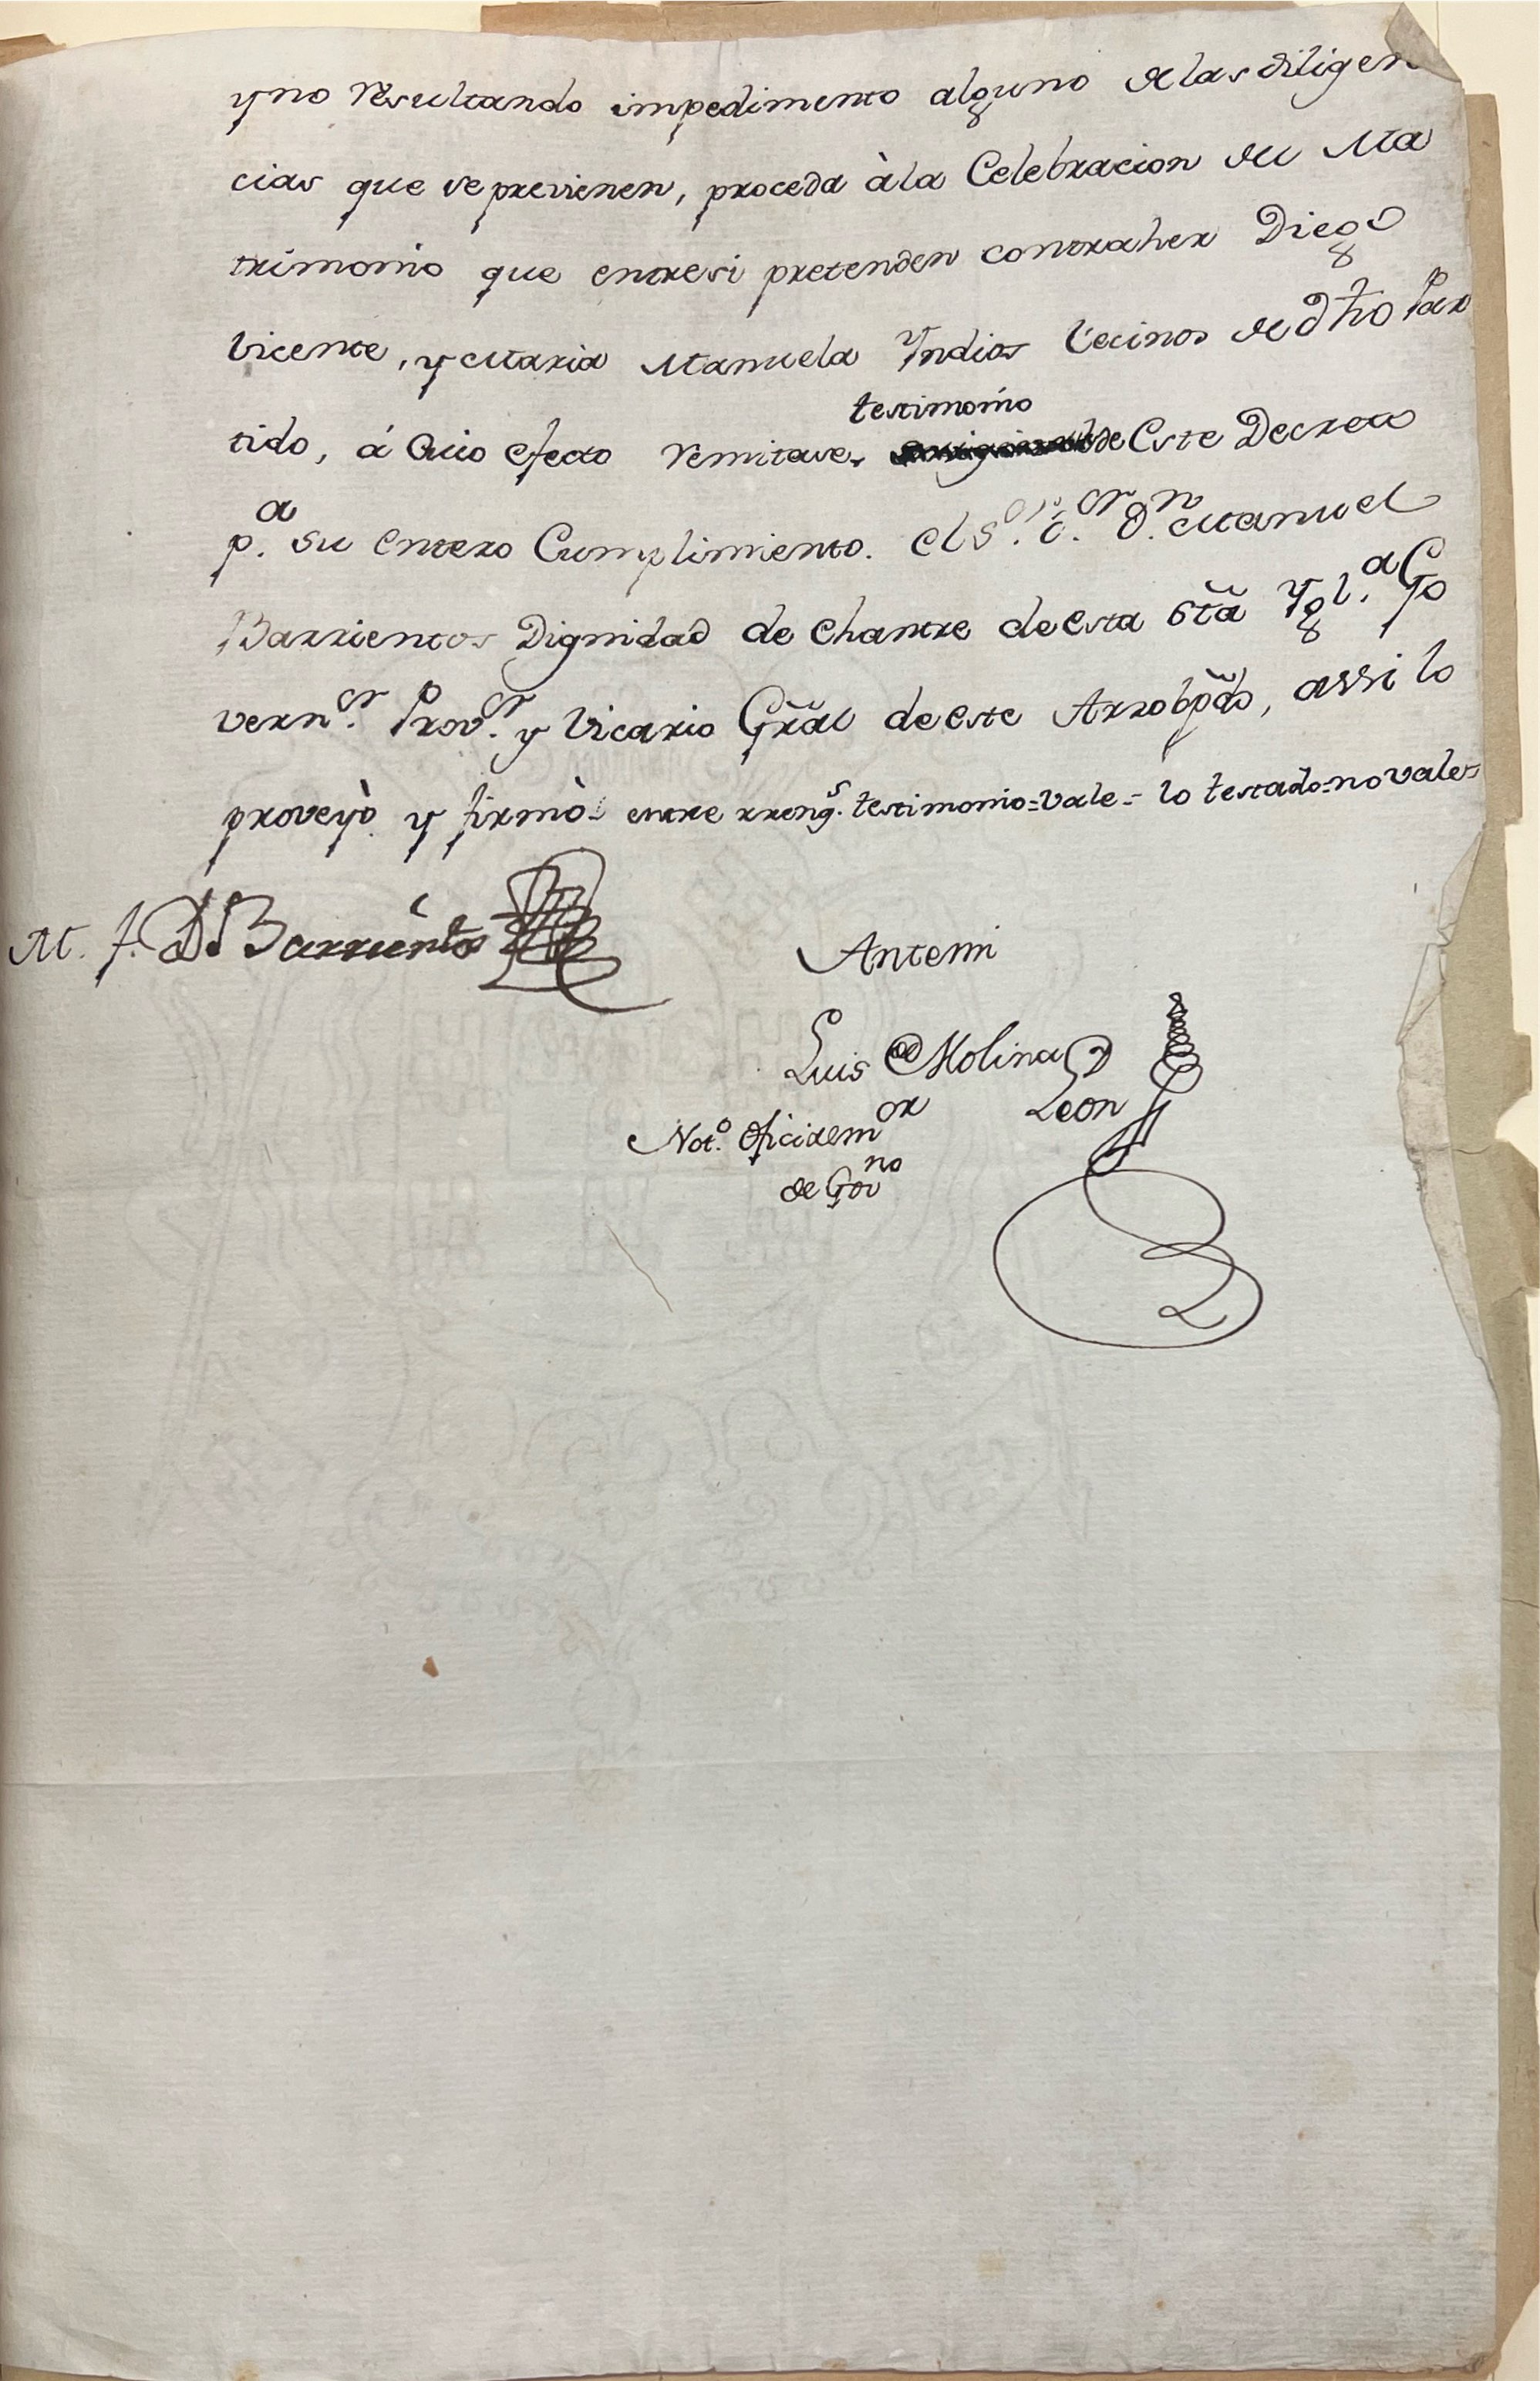 y no resultando impedimento alguno de las diligen
cias que se previenen, proceda à la Celebracion del Ma
trimonio que entresi pretenden contraher Diego
Vicente, y Maria Manuela Yndios Vecinos de dho Par
tido, á Cuio efecto remitase testimonio de Este Decreto
p.a su entero Cumplimiento. El S.or D.or D.n Manuel
Barrientos Dignidad de Chantre de esta Sta Ygl.a Go
vern.or Prov.or y Vicario Gral de este Arzobpdo, assi lo
proveyò y firmò= entre rreng.s testimonio=vale= lo testado=no vale=
M. J. D.r Barrientos
Antemi
Luis de Molina y
Leon
Not.o Ofici. rem.or
de Gov.no